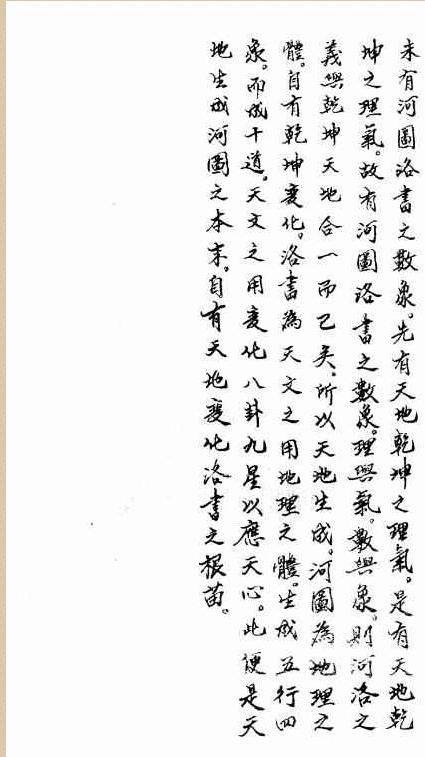 未有河圖洛書之數象。先有天地乾坤之理氣。是有天地乾
坤之理氣。故有河圖洛書之數象。理與氣。數與象。則河洛之
義與乾坤天地合一而已矣。所以天地生成。河圖為地理之
體。自有乾坤變化。洛書為天文之用地理之體。生成五行四
象。而成十道。天文之用變化八卦九星以應天心。此便是天
地生成河圖之本末。自有天地變化洛書之根苗。